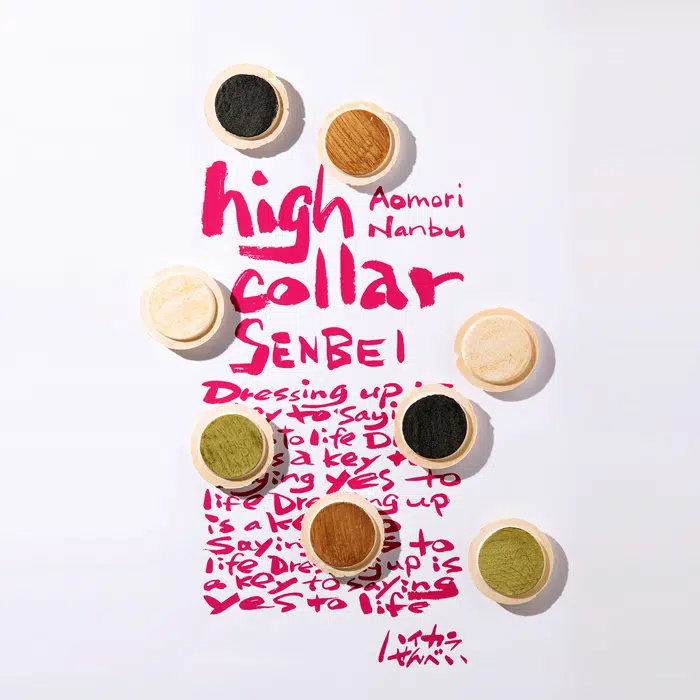 high
Aomori
Nanbu
collar
SENBEI
Dressing up is
to sayi
to life D
s a key t
ying yes to
life Dre g up
is a ke
Sayin to
life Dres up is
a key to saying
yes to life
ハイカラ
せんべい